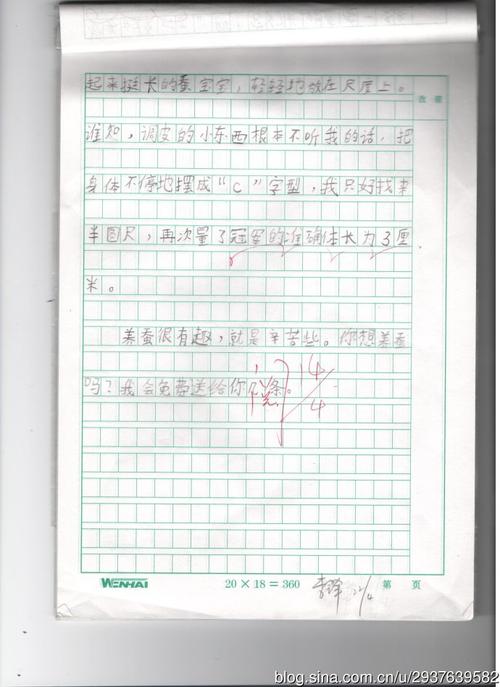 起来挺长的蚕宝宝，轻轻地放在尺度上。
谁知，调皮的小东西根本不听我的话，把
身体不停地摆成“C”字型，我只好找来
半圆尺，再次量了冠军的准确体长为3厘
米。
养蚕很有趣，就是辛苦些。你想养蚕
吗？我会免费送给你 条。
14/4
WENHAI
20×18=360
第 页
blog.sina.com.cn/u/2937639582